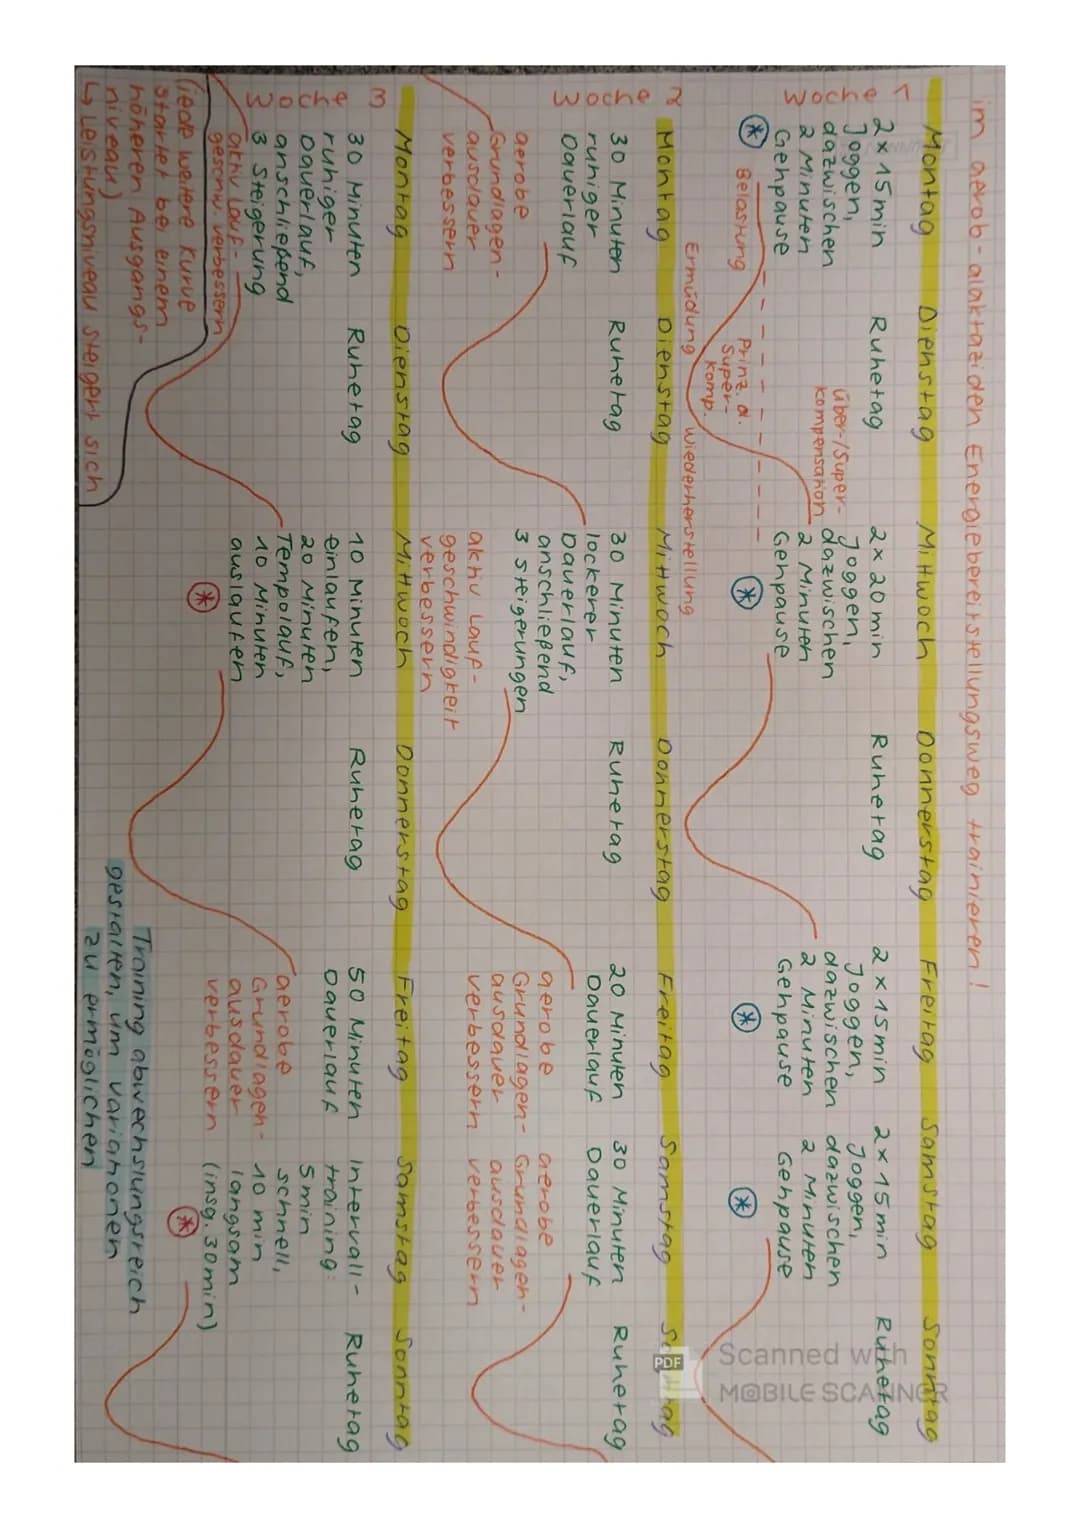 im aerob-alaktaziden Energiebereitstellungsweg trainieren!
Montag Dienstag Mittwoch Donnerstag Freitag Samstag Sonntag
Woche 1
2x15min
Joggen,
dazwischen
2 Minuten
Gehpause
Ruhetag
2x20min
Joggen,
dazwischen
2 Minuten
Gehpause
Ruhetag
2x15min
Joggen,
dazwischen
2 Minuten
Gehpause
2x15min
Joggen,
dazwischen
2 Minuten
Gehpause
Ruhetag
Über-/Super-
kompensation
Belastung
Prinz. d.
Super-
komp.
Ermüdung
Wiederherstellung
Montag Dienstag Mittwoch Donnerstag Freitag Samstag
Woche 2
30 Minuten
ruhiger
Dauerlauf
aerobe
Grundlagen-
ausdauer
verbessern
Ruhetag
30 Minuten
lockerer
Dauerlauf,
anschließend
3 Steigerungen
aktiv Lauf-
geschwindigkeit
verbessern
Ruhetag
20 Minuten
Dauerlauf
aerobe
Grundlagen-
ausdauer
verbessern
30 Minuten
Dauerlauf
aerobe
Grundlagen-
ausdauer
verbessern
Ruhetag
Montag Dienstag Mittwoch Donnerstag Freitag Samstag Sonntag
Woche 3
30 Minuten
ruhiger
Dauerlauf,
anschließend
3 Steigerung
aktiv Lauf-
geschw. verbessern
Ruhetag
10 Minuten
einlaufen,
20 Minuten
Tempolauf,
10 Minuten
auslaufen
Ruhetag
50 Minuten
Dauerlauf
aerobe
Grundlagen-
ausdauer
verbessern
Intervall-
training:
5min
schnell,
10 min
langsam
(insg. 30min)
Ruhetag
(jede weitere Kurve
startet bei einem
höheren Ausgangs-
niveau)
↳ Leistungsniveau steigert sich
Training abwechslungsreich
gestalten, um Variationen
zu ermöglichen
PDF
Scanned with
MOBILE SCANNER